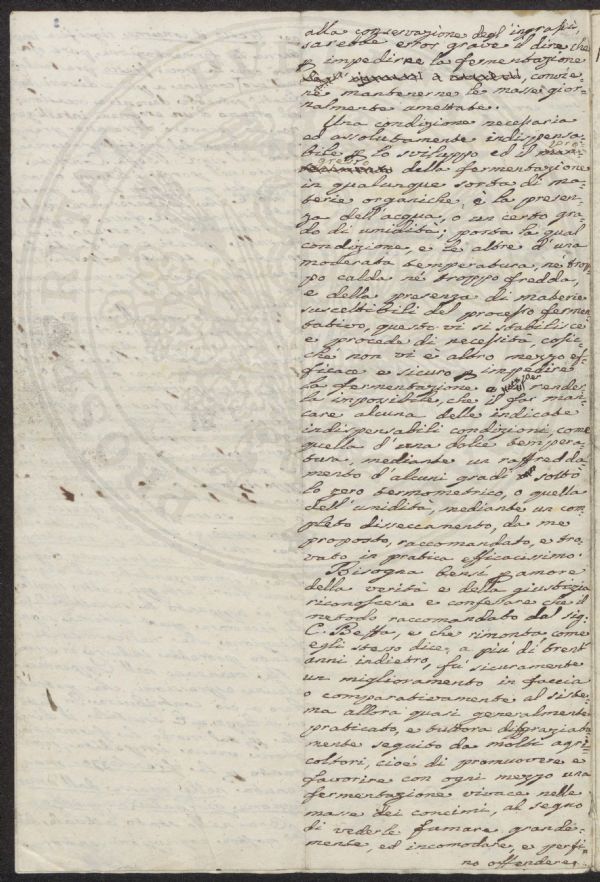 alla conservazione degl'ingrassi,
sarebbe error grave il dire che
p impedirne la fermentazione
convie-
ne mantenerne le masse gior-
nalmente annettate.
Una condizione necessaria
ed assolutamente indispensa-
bile p lo sviluppo ed il pro-
gresso della fermentazione
in qualunque sorta di ma-
terie organiche, è la presen-
za dell'acqua, o un certo gra-
do di umidità; posta la qual
condizione, e le altre d'una
moderata temperatura, né trop-
po calda né troppo fredda,
e della presenza di materie
suscettibili del processo fermen-
tativo, questo vi si stabilisce
e procede di necessità, cosic-
ché non vi è altro mezzo ef-
ficace e sicuro p impedire
la fermentazione e render
la impossibile, che il far man-
care alcuna delle indicate
indispensabili condizioni, come
quella d'una dolce tempera-
tura, mediante un raffredda-
mento d'alcuni gradi sotto
lo zero termometrico, o quella
dell'umidità, mediante un com-
pleto disseccamento, da me
proposto, raccomandato, e tro-
vato in pratica efficacissimo.
Bisogna bensì p amore
della verità e della giustizia
riconoscere e confessare che il
metodo raccomandato dal Sig:
C. Beffa, e che rimonta, come
egli stesso dice, a più di trent'
anni indietro, fu sicuramente
un miglioramento in faccia
o comparativamente al siste-
ma allora quasi generalmente
praticato, e tuttora disgraziata-
mente seguito da molti agri-
coltori, cioè di promuovere e
favorire con ogni mezzo una
fermentazione vivace nelle
masse dei concimi, al segno
di vederle fumare grande-
mente, ed incomodare, e perfi-
no offendere,